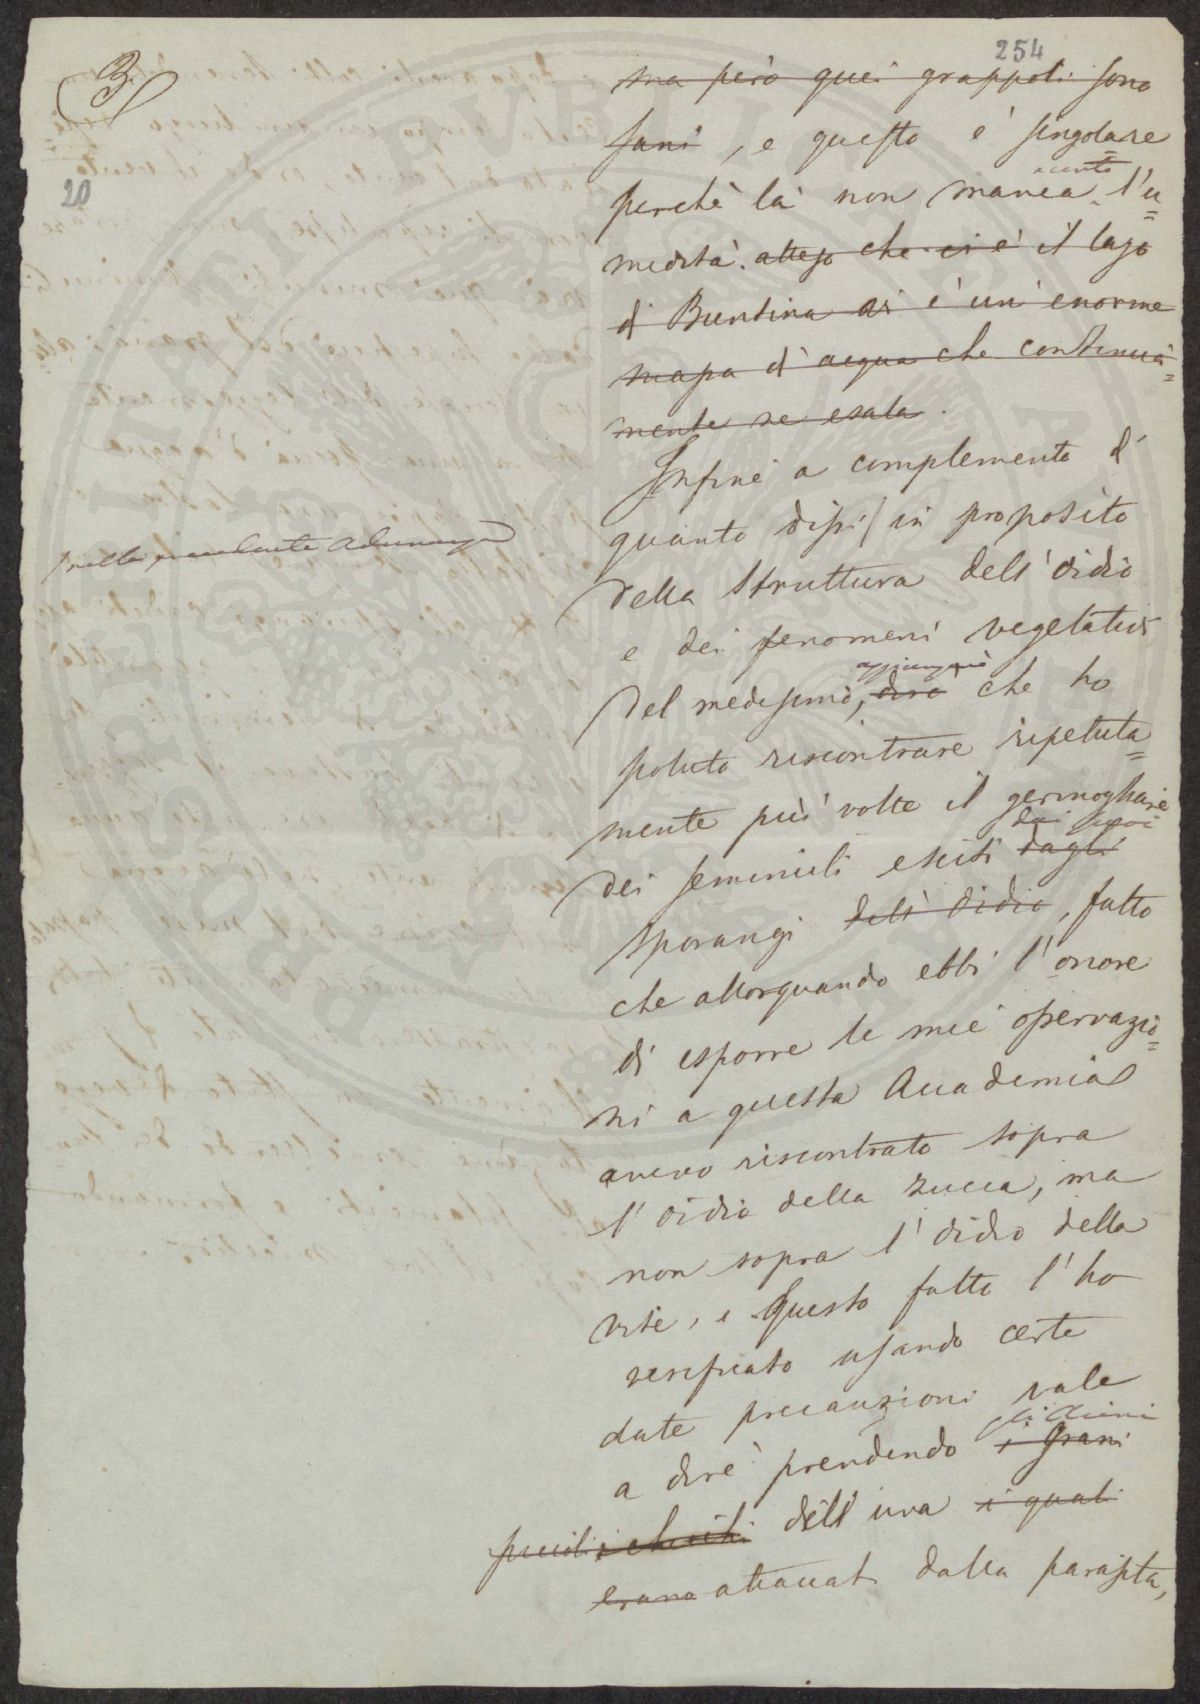 254
3.
20
ma però quei grappoli sono
sani, e questo è singolare
perchè là non manca certo l'u=
midità. atteso che ci è il lago
di Bientina vi è un' enorme
massa d' acqua che continua=
mente se esala.
Infine a complemento di
quanto dissi / in proposito
/ nella precedente adunanza
della struttura dell' oidio
e dei fenomeni vegetativi
del medesimo, aggiungerò dirò che ho
potuto riscontrare ripetuta=
mente più volte il germogliare
dei seminuli esciti dai suoi dagli
sporangi dell' oidio, fatto
che allorquando ebbi l' onore
di esporre le mie osservazio=
ni a questa Accademia
avevo riscontrato sopra
l' oidio della zucca, ma
non sopra l' oidio della
vite, e questo fatto l' ho
verificato usando certe
date precauzioni vale
a dire prendendo gli acini i grani
piccoli i chicchi dell' uva i quali
erano attaccati dalla parasita,